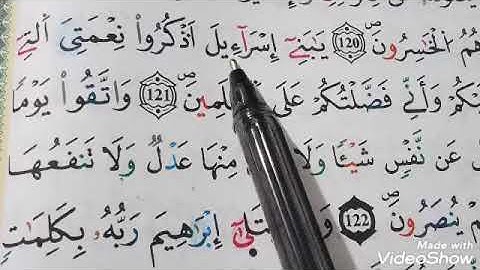 هُمُ الْخَٰسِرُونَ 120 يَٰبَنِےٓ إِسْرَآءِيلَ اَذْكُرُواْ نِعْمَتِيَ اَلتِےٓ
وَأَنِّے فَضَّلْتُكُمْ عَلَى 121 وَاتَّقُواْ يَوْماً
عَن نَّفْسٖ شَيْـٔاً وَلَا مِنْهَا عَدْلٞ وَلَا تَنفَعُهَا
يُنصَرُونَ 122 إِبْرَٰهِيمَ رَبُّهُۥ بِكَلِمَٰتٖ
Made with
VideoShow